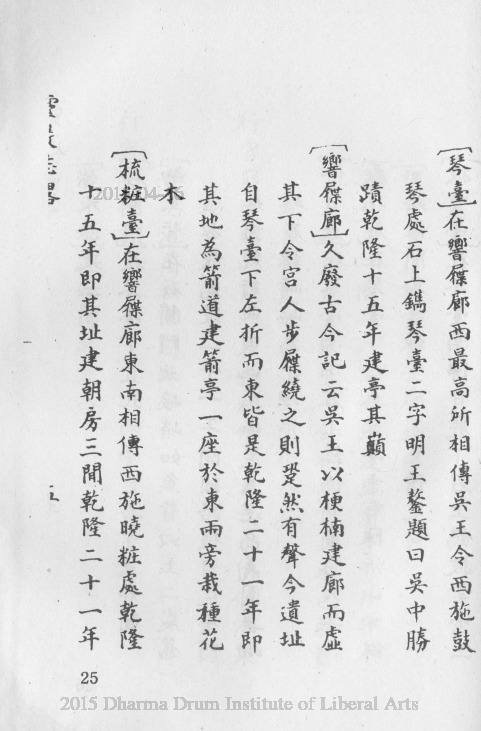 〔琴臺〕在響屧廊西最高所相傳吳王令西施鼓
琴處石上鐫琴臺二字明王鏊題曰吳中勝
蹟乾隆十五年建亭其巔
〔響屧廊〕久廢古今記云吳王以梗楠建廊而虛
其下令宮人步屧繞之則跫然有聲今遺址
自琴臺下左折而東皆是乾隆二十一年即
其地為箭道建箭亭一座於東兩旁栽種花
木
〔梳粧臺〕在響屧廊東南相傳西施曉粧處乾隆
十五年即其址建朝房三間乾隆二十一年
志畧
五
25
2015 Dharma Drum Institute of Liberal Arts